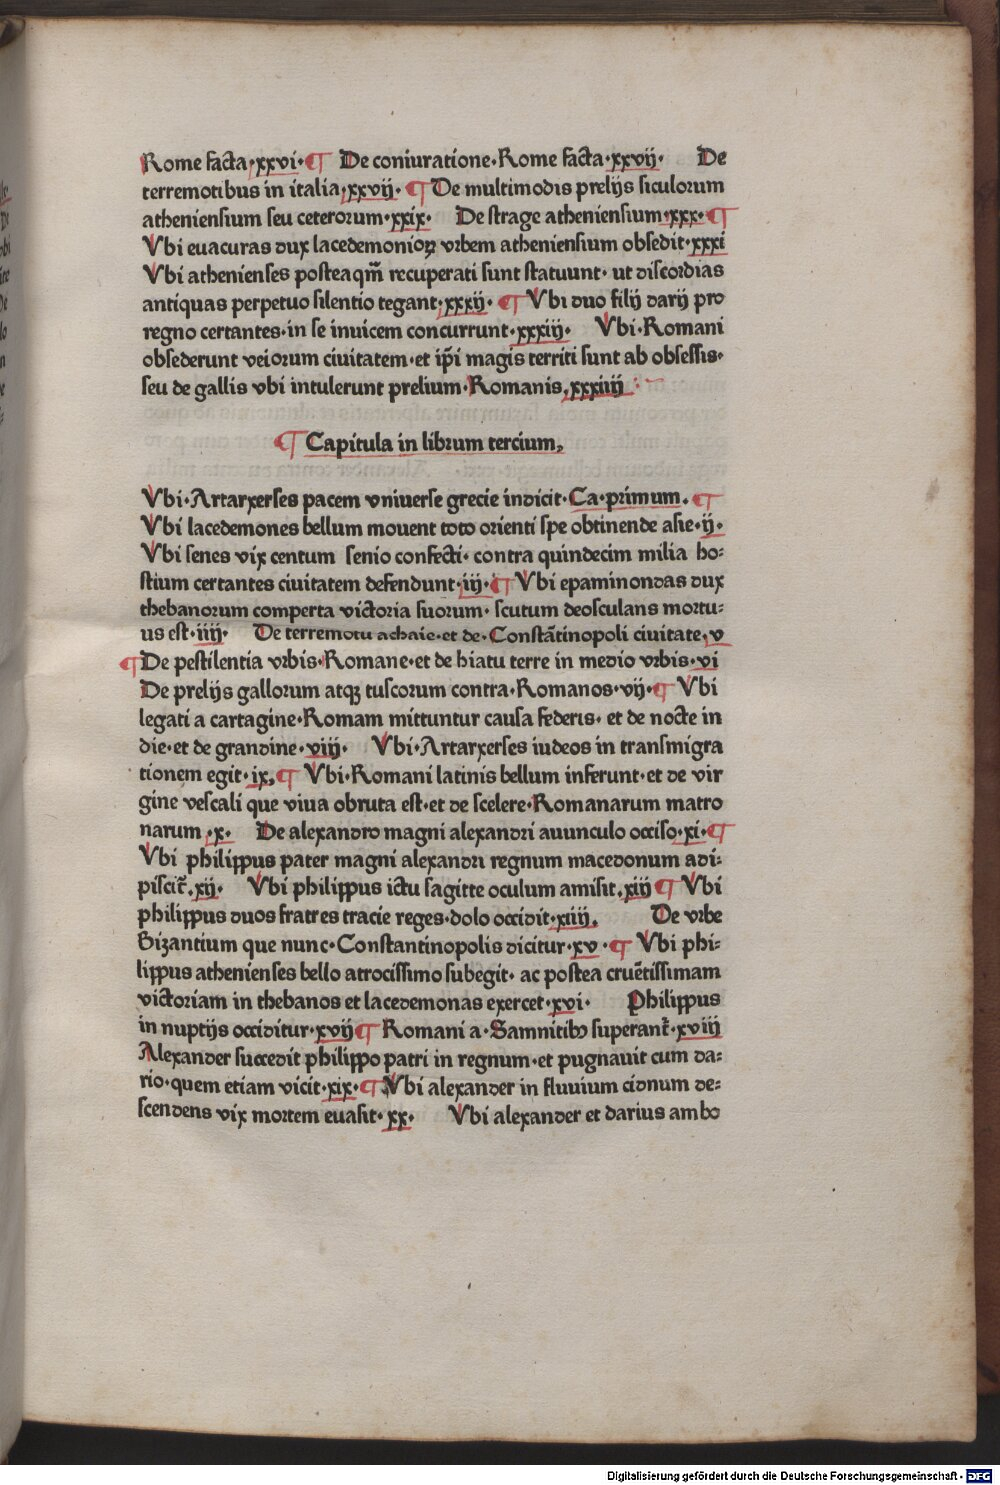 Rome facta·xxvi·¶ De coniuratione·Rome facta·xxvij· De
terremotibus in italia·xxvij· ¶ De multimodis prelijs siculorum
atheniensium seu ceterorum·xxix· De strage atheniensium·xxx·¶
Vbi euacuras dux lacedemonioꝝ vrbem atheniensium obsedit·xxxi
Vbi athenienses posteaqm̄ recuperati sunt statuunt· ut discordias
antiquas perpetuo silentio tegant·xxxij· ¶ Vbi duo filij darij pro
regno certantes·in se inuicem concurrunt·xxxiij· Vbi·Romani
obsederunt veiorum ciuitatem·et ip̄i magis territi sunt ab obsessis·
seu de gallis vbi intulerunt prelium·Romanis·xxxiiij
¶ Capitula in librum tercium,
Vbi·Artarxerses pacem vniuerse grecie indicit·Ca·primum·¶
Vbi lacedemones bellum mouent toto orienti spe obtinende asie·ij·
Vbi senes vix centum senio confecti· contra quindecim milia ho:
stium certantes ciuitatem defendunt·iij·¶ Vbi epaminondas dux
thebanorum comperta victoria suorum· scutum deosculans mortu:
us est·iiij· De terremotu achaie·et de·Constātinopoli ciuitate·v
¶De pestilentia vrbis·Romane·et de hiatu terre in medio vrbis·vi
De prelijs gallorum atqꝫ tuscorum contra·Romanos·vij·¶ Vbi
legati a cartagine·Romam mittuntur causa federis· et de nocte in
die·et de grandine·viij· Vbi·Artarxerses iudeos in transmigra
tionem egit·ix,¶ Vbi·Romani latinis bellum inferunt·et de vir
gine vescali que viua obruta est·et de scelere·Romanarum matro
narum ·x· De alexandro magni alexandri auunculo occiso·xi·¶
Vbi philippus pater magni alexandri regnum macedonum adi:
piscit̄·xij· Vbi philippus ictu sagitte oculum amisit·xiij ¶ Vbi
philippus duos fratres tracie reges·dolo occidit·xiiij, De vrbe
Bizantium que nunc·Constantinopolis dicitur·xv·¶ Vbi phi:
lippus athenienses bello atrocissimo subegit· ac postea cruētissimam
victoriam in thebanos et lacedemonas exercet·xvi· Philippus
in nuptijs occiditur·xvij¶ Romani a·Samnitibꝫ superant̄·xviij
Alexander succedit philippo patri in regnum·et pugnauit cum da:
rio·quem etiam vicit·xix·¶Vbi alexander in fluuium cidnum de:
scendens vix mortem euasit·xx· Vbi alexander et darius ambo
Digitalisierung gefördert durch die Deutsche Forschungsgemeinschaft - DFG